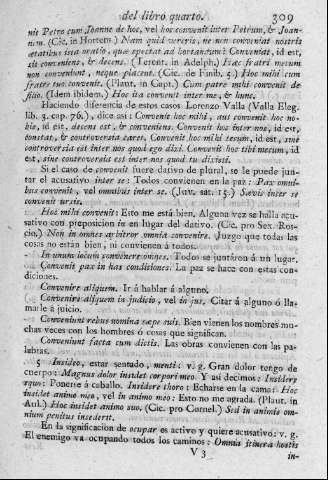 del libro quarto. 309
nit Petro cum Joanne de hoc, vel hoc convenit inter Petrum, & Joan-
nem. (Cic. in Hortem.) Nam quid vereris, ne non conveniat nostris
ætatibus ista oratio, quæ spectat ad hortandum? Conveniat, id est,
sit conveniens, & decens. (Terent. in Adelph.) Hæc fratri meum
non conveniunt, neque placent. (Cic. de Finib. 5.) Hoc mihi cum
fratre tuo convenit. (Plaut. in Capt.) Cum patre mihi convenit de
filio. (Idem ibidem.) Hoc ita convenit inter me, & hunc.
Haciendo diferencia de estos casos Lorenzo Valla (Valla Eleg.
lib. 3. cap. 76.), dice asi: Convenit hoc mihi, aut convenit hoc no-
bis, id est, decens est, & conveniens. Convenit hoc inter nos, id est,
constat, & controversia caret. Convenit hoc mihi tecum, id est, sine
controversia est inter nos quod ego dixi. Convenit hoc tibi mecum, id
est, sine controversia est inter nos quod tu dixisti.
Si el caso de convenir fuere dativo de plural, se le puede jun-
tar el acusativo inter se: Todos convienen en la paz: Pax omni-
bus convenit, vel omnibus inter se. (Juv. sat. 15.) Sævis inter se
convenit ursis.
Hoc mihi convenit: Esto me está bien. Alguna vez se halla acu-
sativo con preposicion in en lugar del dativo. (Cic. pro Sex. Ros-
cio.) Non in omnes arbitror omnia convenire. Juzgo que todas las
cosas no están bien, ni convienen á todos.
In unum locum convenere omnes. Todos se juntáron á un lugar.
Convenit pax in has conditiones. La paz se hace con estas con-
diciones.
Convenire aliquem. Ir á hablar á alguno.
Convenire aliquem in judicio, vel in jus. Citar á alguno ó lla-
marle á juicio.
Conveniunt rebus nomina sæpe suis. Bien vienen los nombres mu-
chas veces con los hombres ó cosas que significan.
Conveniunt facta cum dictis. Las obras convienen con las pa-
labras.
5 Insideo, estar sentado, menti: v. g. Gran dolor tengo de
cuerpo: Magnus dolor insidet corpori meo. Y asi decimos: Insidere
equo: Ponerse á caballo. Insidere thoro: Echarse en la cama: Hoc
insidet animo meo, vel in animo meo: Esto no me agrada. (Plaut. in
Aul.) Hoc insidet animo suo. (Cic. pro Cornel.) Sed in animis om-
nium penitus insederit.
En la significacion de ocupar es activo y quiere acusativo: v. g.
El enemigo va ocupando todos los caminos: Omnia itinera hostis
V 3 in-